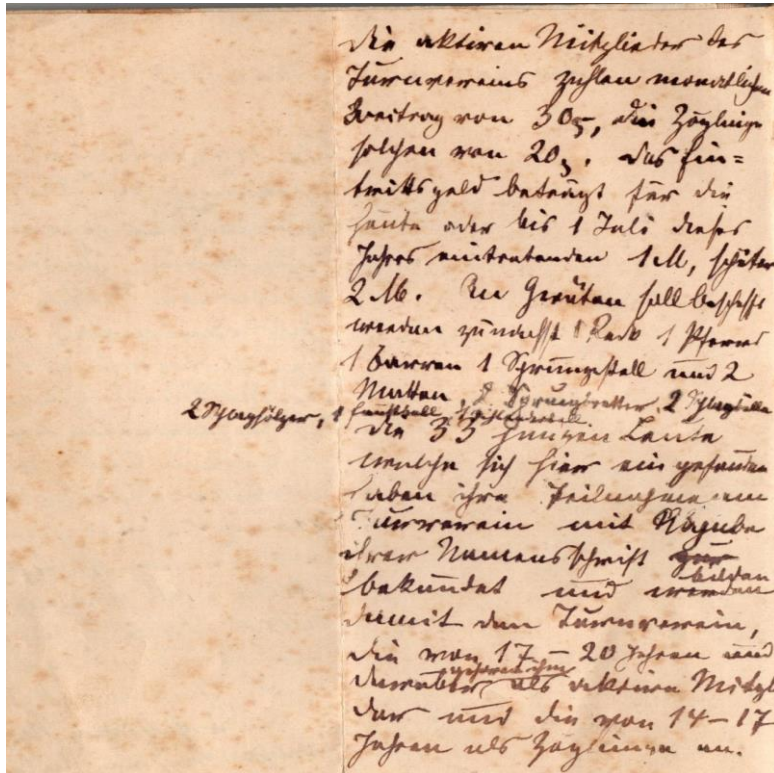 Die aktiven Mitglieder des
Turnvereins zahlen monatlichen
Beitrag von 30 ₰, die Zöglinge
solchen von 20 ₰. Das Ein=
trittsgeld beträgt für die
heute oder bis 1 Juli dieses
Jahres eintretenden 1 M, später
2 M. An Geräten soll beschafft
werden zunächst 1 Reck 1 Pferd
1 Barren 1 Sprungstell und 2
Matten, 2 Sprungbretter, 2 Schlagbälle
2 Schlaghölzer, 1 Faustball, 1
Die 33 jungen Leute
welche sich hier eingefunden
haben ihre Teilnahme am
Turnverein mit
ihrer Namensschrift zur
bekundet und werden bilden
damit den Turnverein,
die von 17 - 20 Jahren und
darüber gehören ihm als aktive Mitgl
der und die von 14 - 17
Jahren als Zöglinge an.